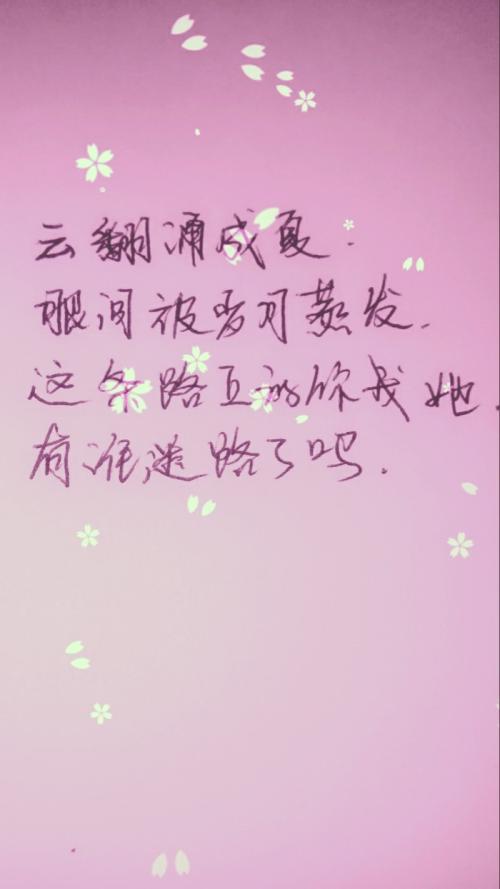 云翻涌成夏.
眼泪被岁月蒸发.
这条路上的你我她.
有谁迷路了吗.